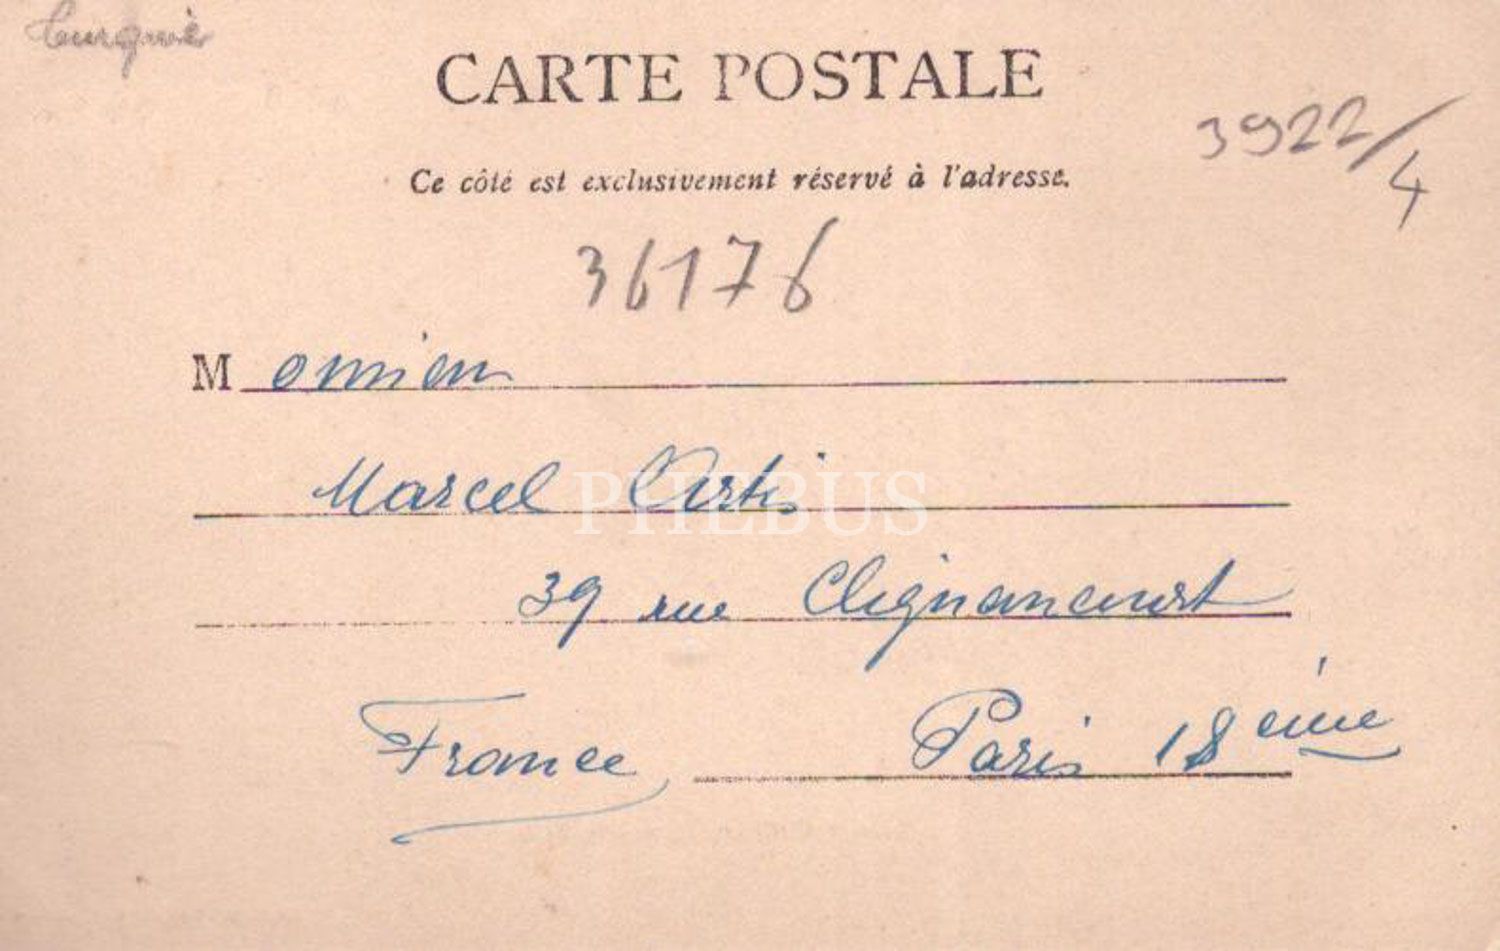 Turquie
CARTE POSTALE
3922/4
Ce côté est exclusivement réservé à l'adresse.
36176
M onsieur
Marcel Artis
PHEBUS
39 rue Clignancourt
France Paris 18 eme